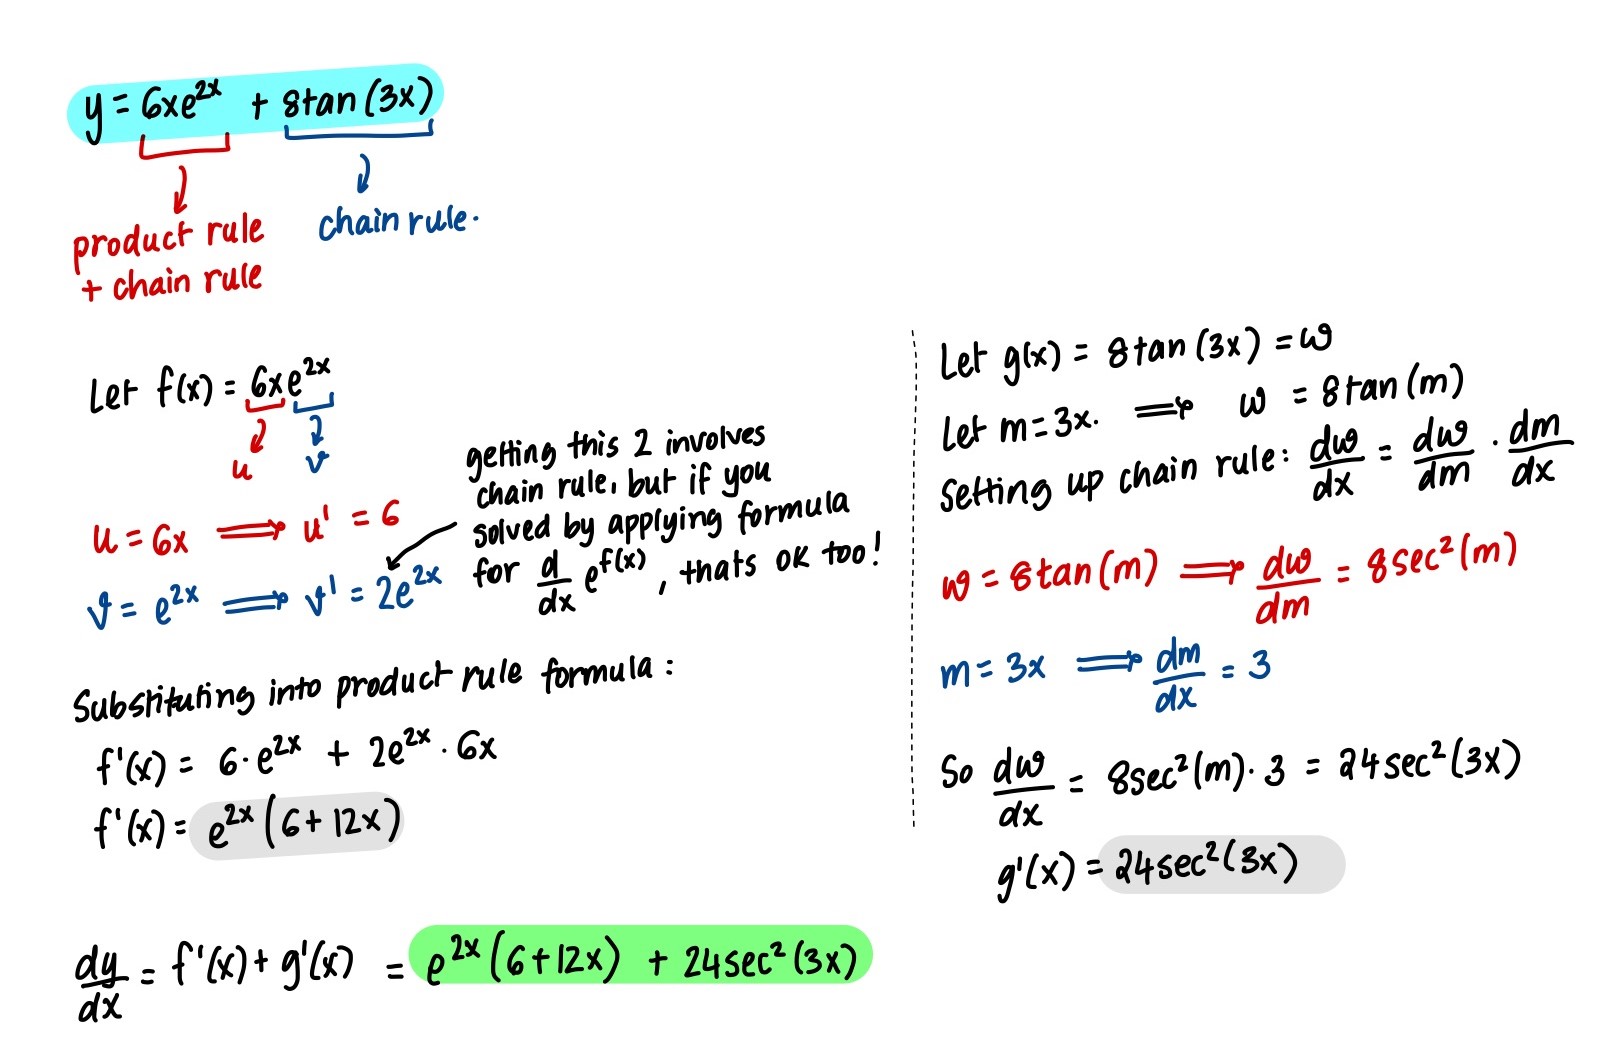 y = 6xe^{2x} + 8tan(3x)
product rule + chain rule
chain rule.
Let f(x) = 6xe^{2x}
u v
u = 6x ⟹ u' = 6
v = e^{2x} ⟹ v' = 2e^{2x}
getting this 2 involves
chain rule, but if you
solved by applying formula
for d/dx e^{f(x)}, thats ok too!
Substituting into product rule formula:
f'(x) = 6·e^{2x} + 2e^{2x}·6x
f'(x) = e^{2x}(6+12x)
Let g(x) = 8tan(3x) = w
Let m=3x. ⟹ w = 8tan(m)
Setting up chain rule: dw/dx = dw/dm · dm/dx
w = 8tan(m) ⟹ dw/dm = 8sec²(m)
m = 3x ⟹ dm/dx = 3
So dw/dx = 8sec²(m)·3 = 24sec²(3x)
g'(x) = 24sec²(3x)
dy/dx = f'(x)+g'(x) = e^{2x}(6+12x) + 24sec²(3x)